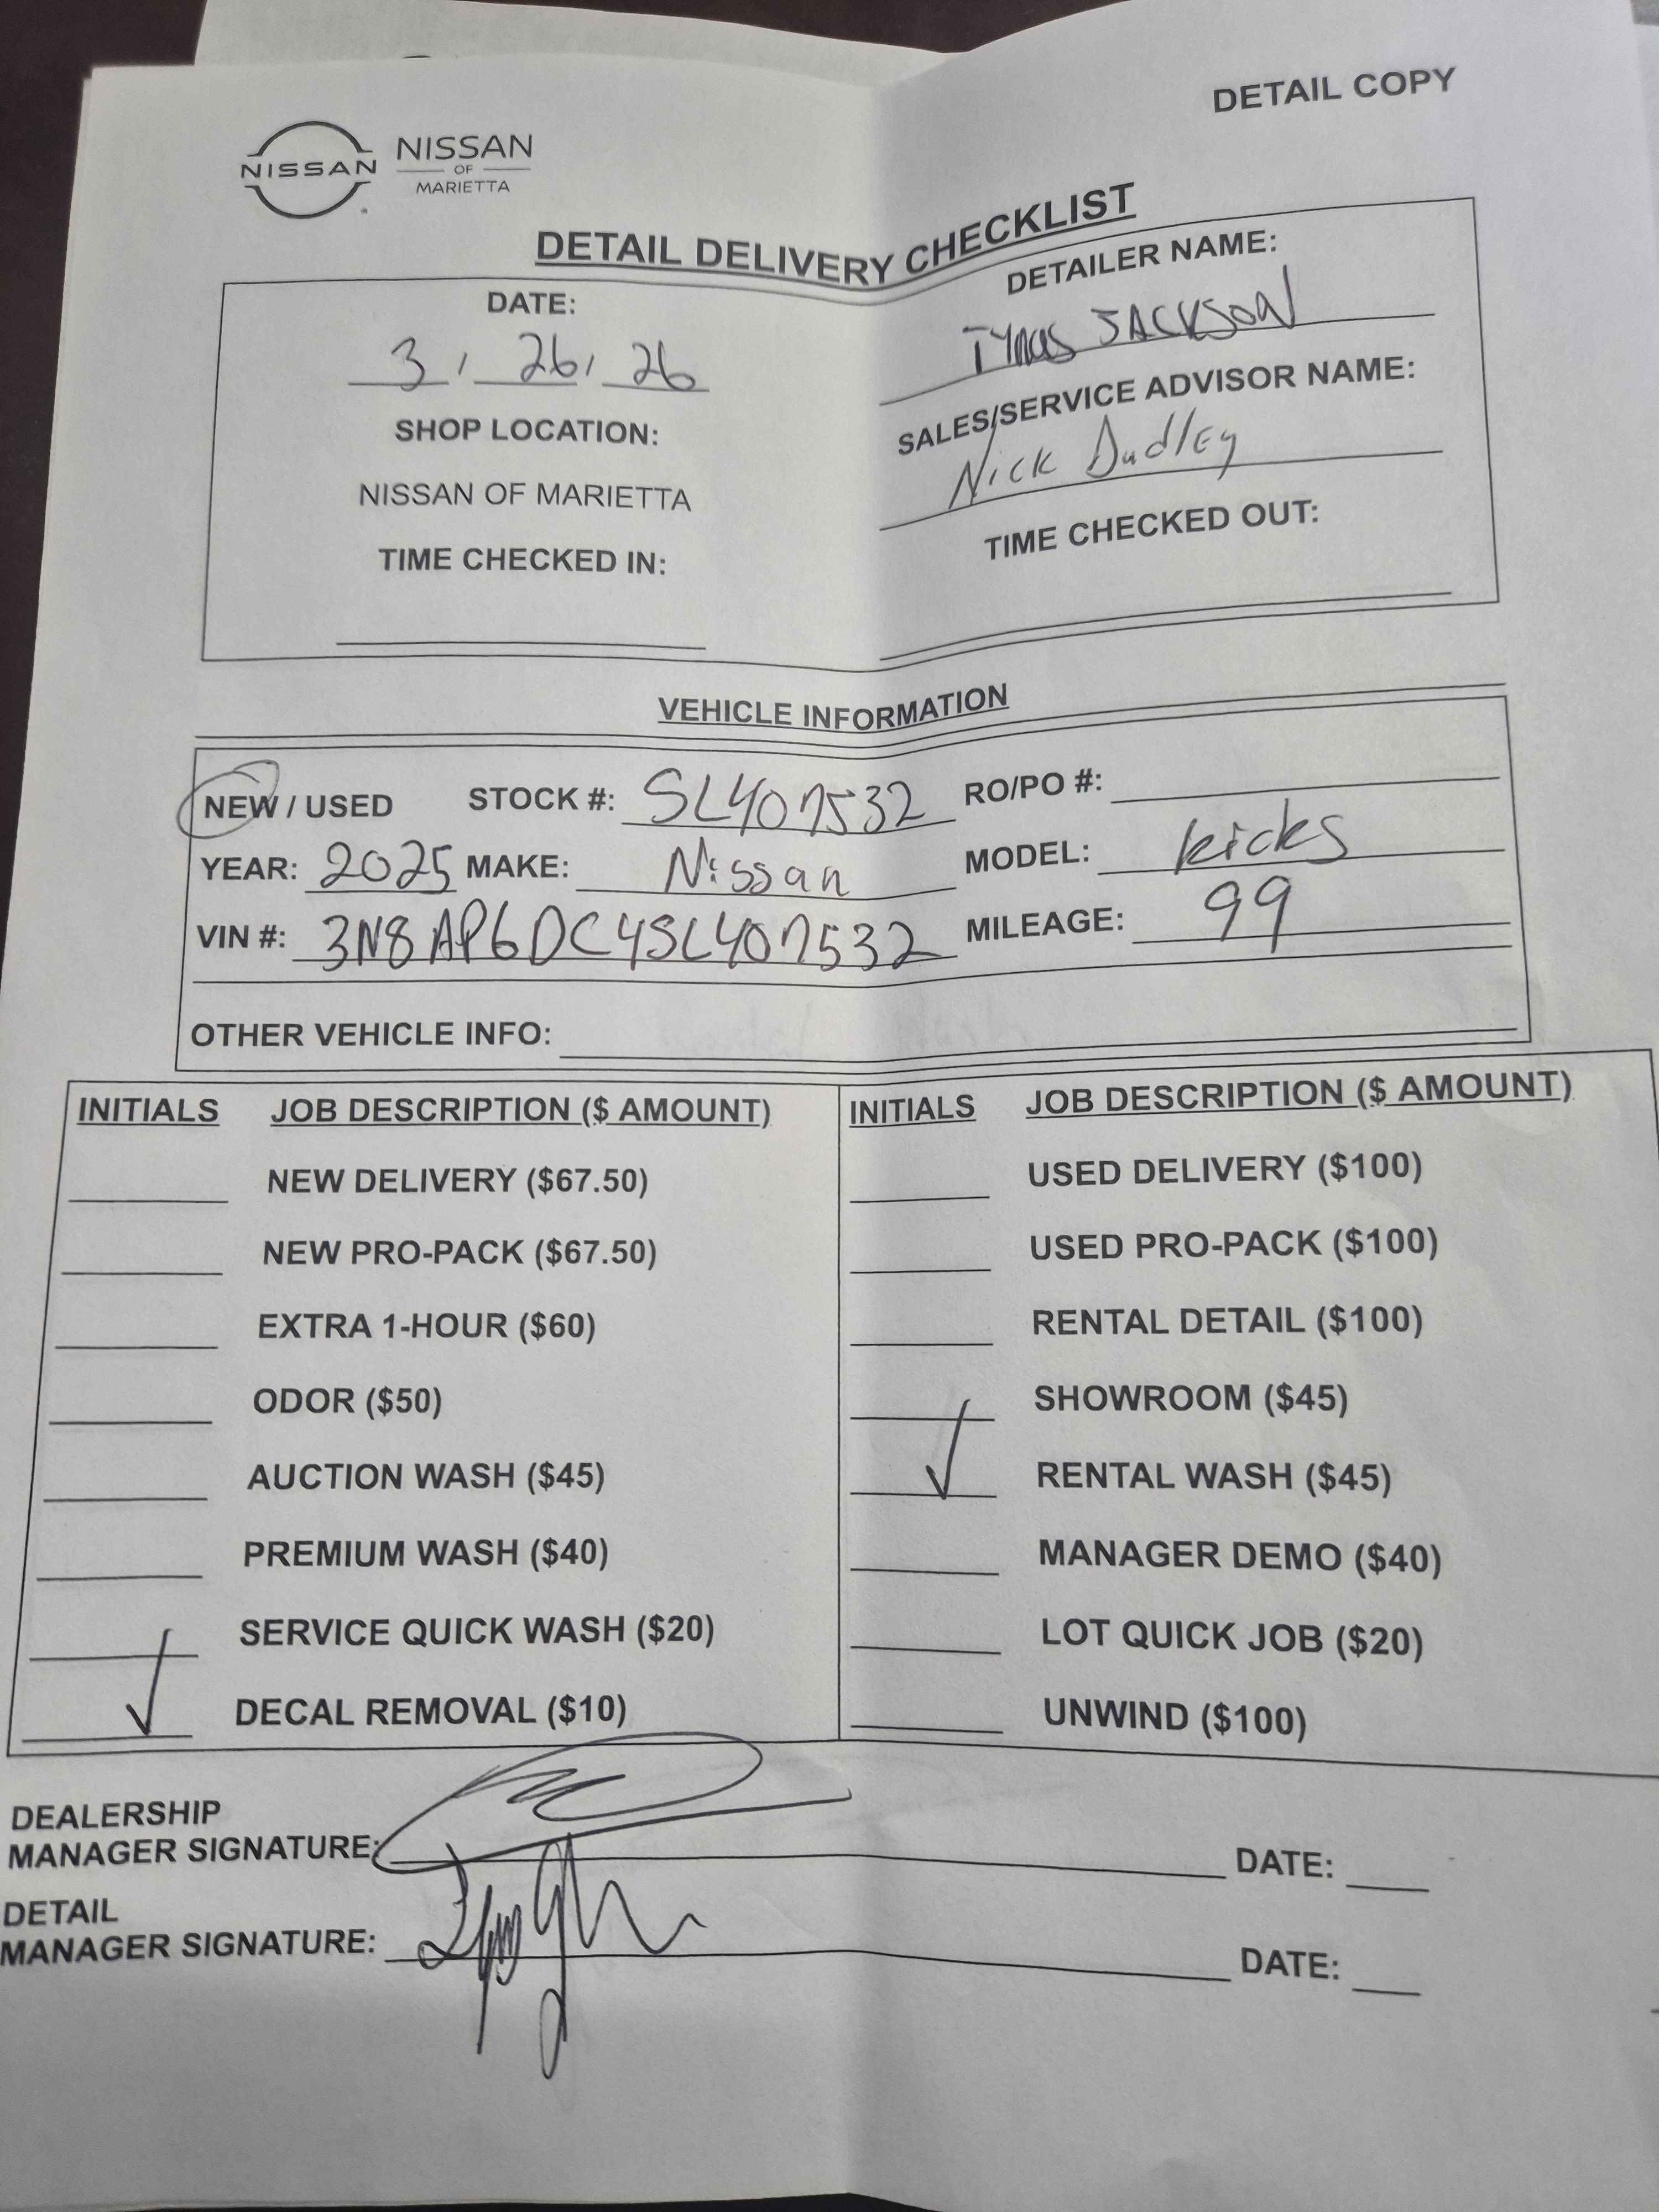 DETAIL COPY
NISSAN
NISSAN
OF
MARIETTA
DETAIL DELIVERY CHECKLIST
DATE:
3, 26, 26
SHOP LOCATION:
NISSAN OF MARIETTA
TIME CHECKED IN:
DETAILER NAME:
JACKSON
SALES/SERVICE ADVISOR NAME:
Nick Dudley
TIME CHECKED OUT:
VEHICLE INFORMATION
NEW / USED STOCK #: SL407532 RO/PO #:
YEAR: 2025 MAKE: Nissan MODEL: kicks
VIN #: 3N8AP6DC4SL407532 MILEAGE: 99
OTHER VEHICLE INFO:
INITIALS JOB DESCRIPTION ($ AMOUNT)
NEW DELIVERY ($67.50)
NEW PRO-PACK ($67.50)
EXTRA 1-HOUR ($60)
ODOR ($50)
AUCTION WASH ($45)
PREMIUM WASH ($40)
SERVICE QUICK WASH ($20)
✓ DECAL REMOVAL ($10)
INITIALS JOB DESCRIPTION ($ AMOUNT)
USED DELIVERY ($100)
USED PRO-PACK ($100)
RENTAL DETAIL ($100)
SHOWROOM ($45)
✓ RENTAL WASH ($45)
MANAGER DEMO ($40)
LOT QUICK JOB ($20)
UNWIND ($100)
DEALERSHIP
MANAGER SIGNATURE: DATE:
DETAIL
MANAGER SIGNATURE: DATE: